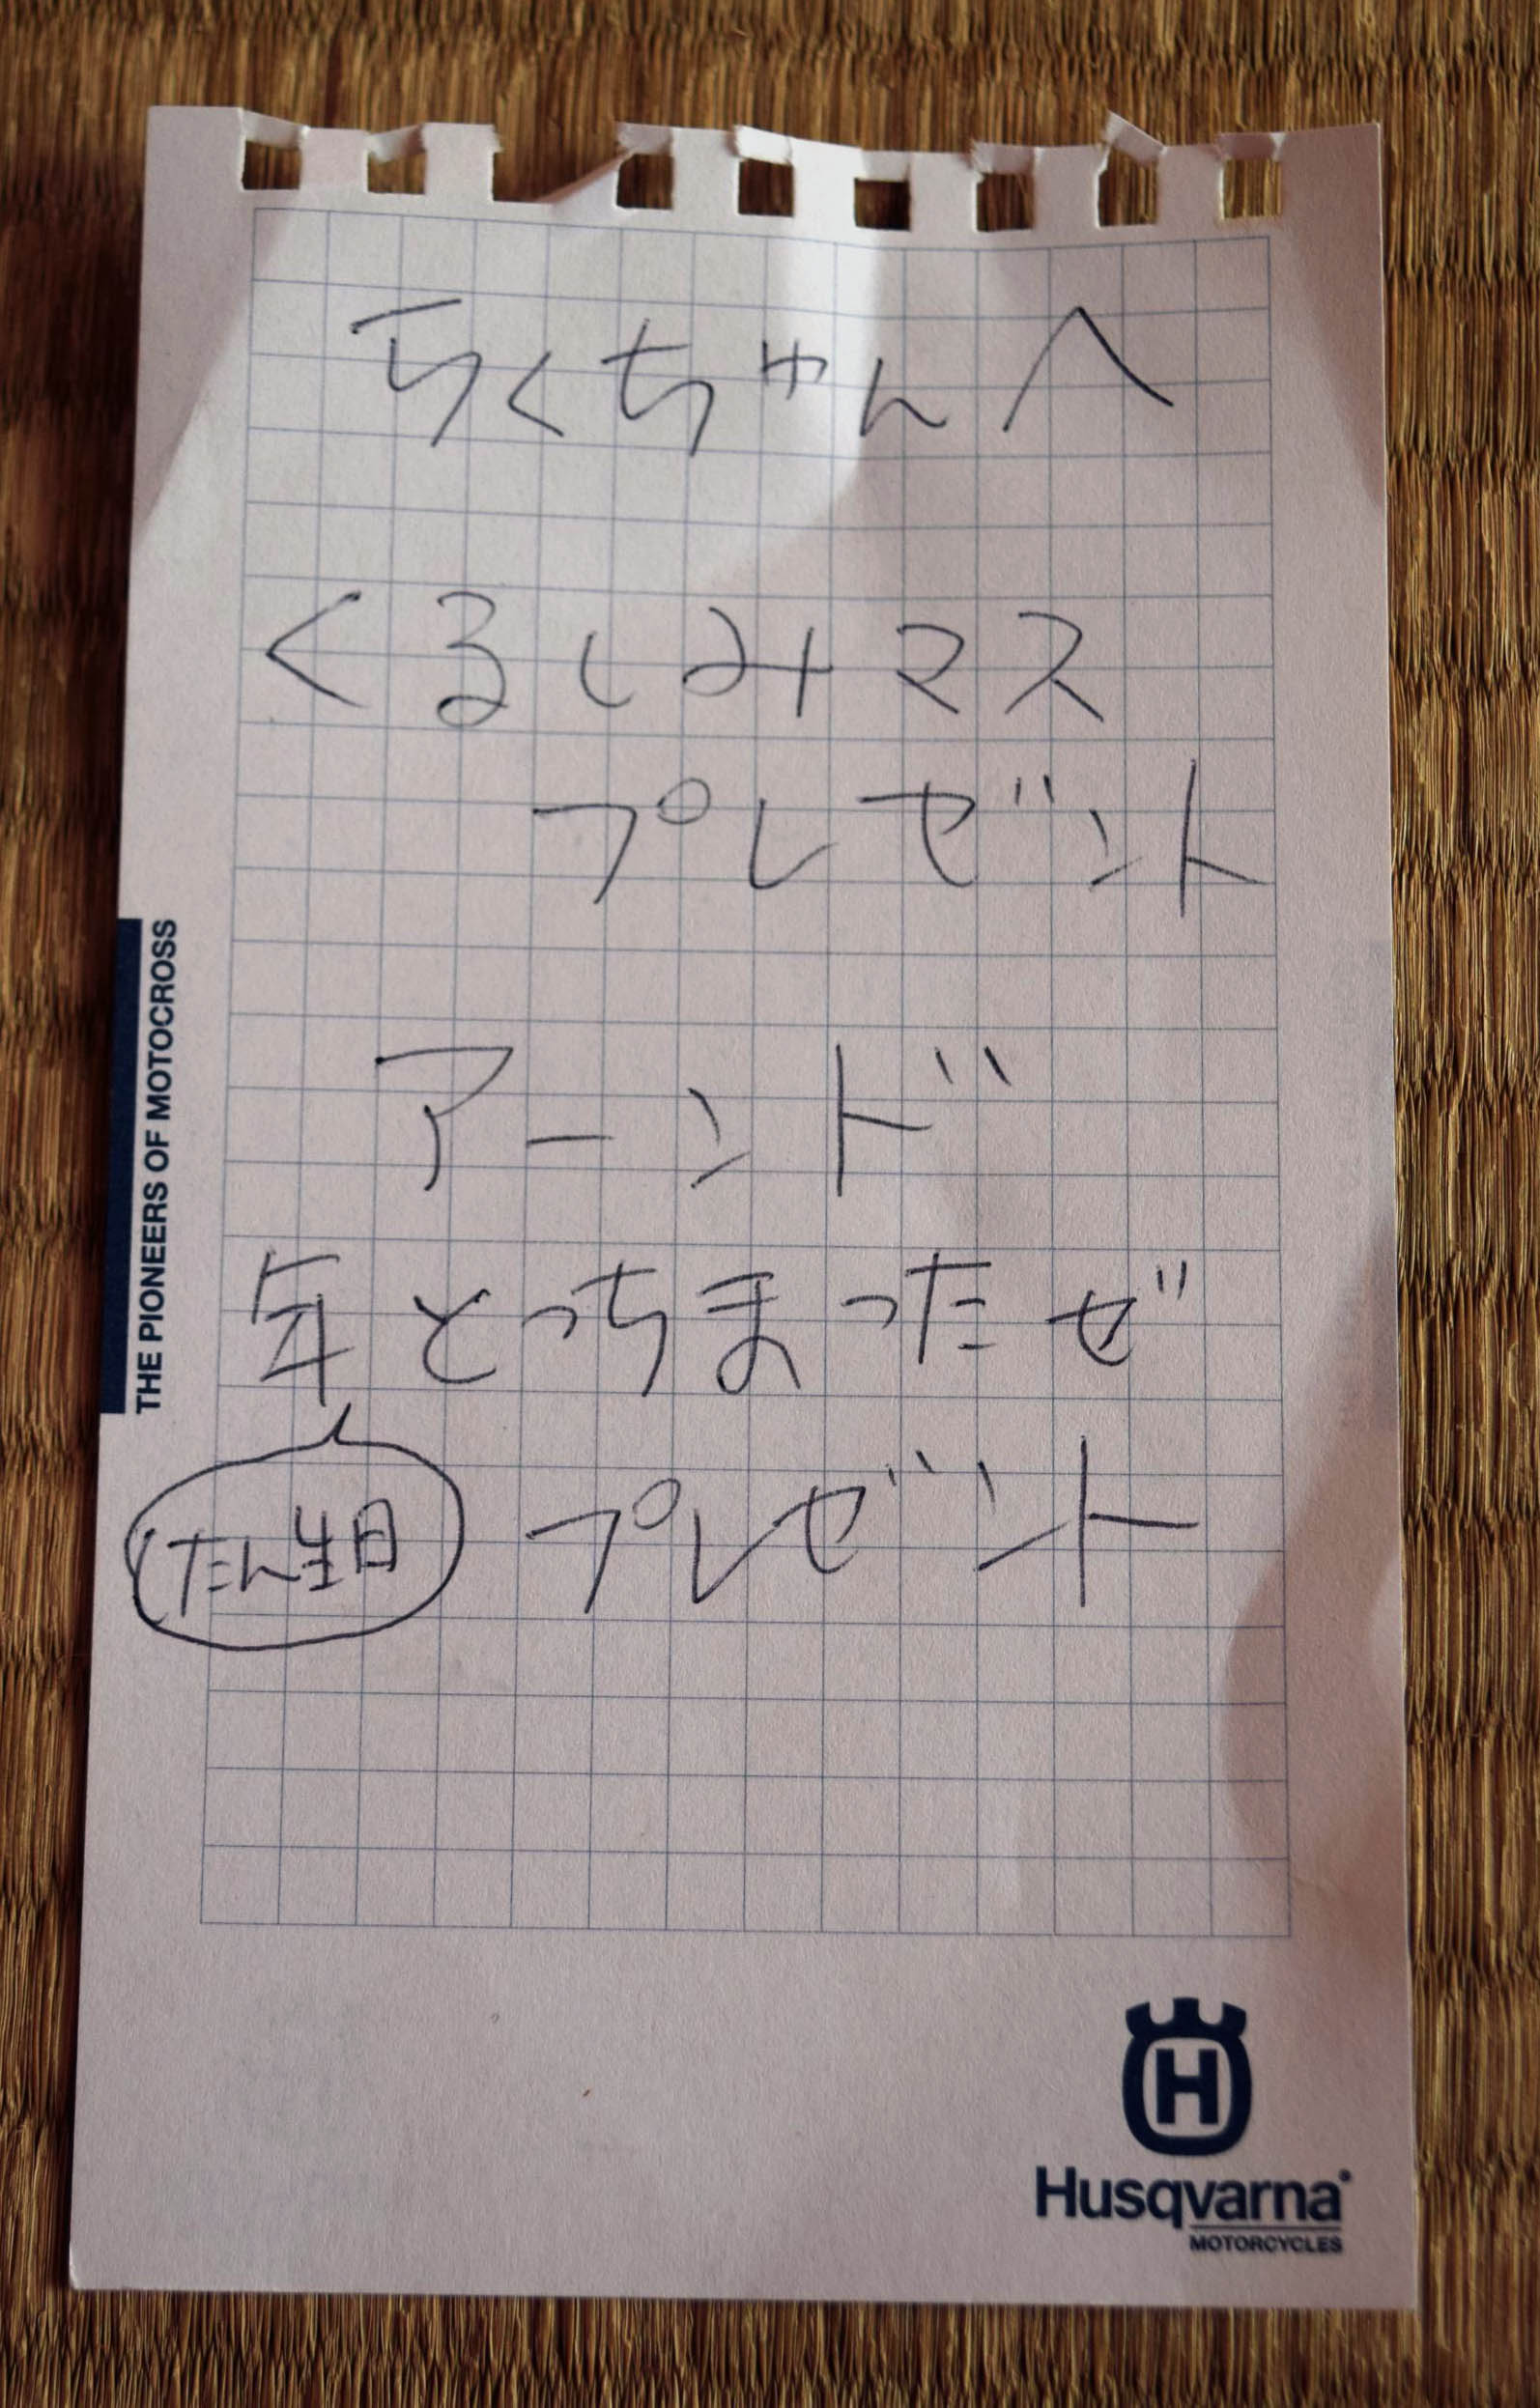 ちくちゃんへ
くるしみマス
プレゼント
アーンド
年とっちまったぜ
たん生日
プレゼント
THE PIONEERS OF MOTOCROSS
H
Husqvarna
MOTORCYCLES